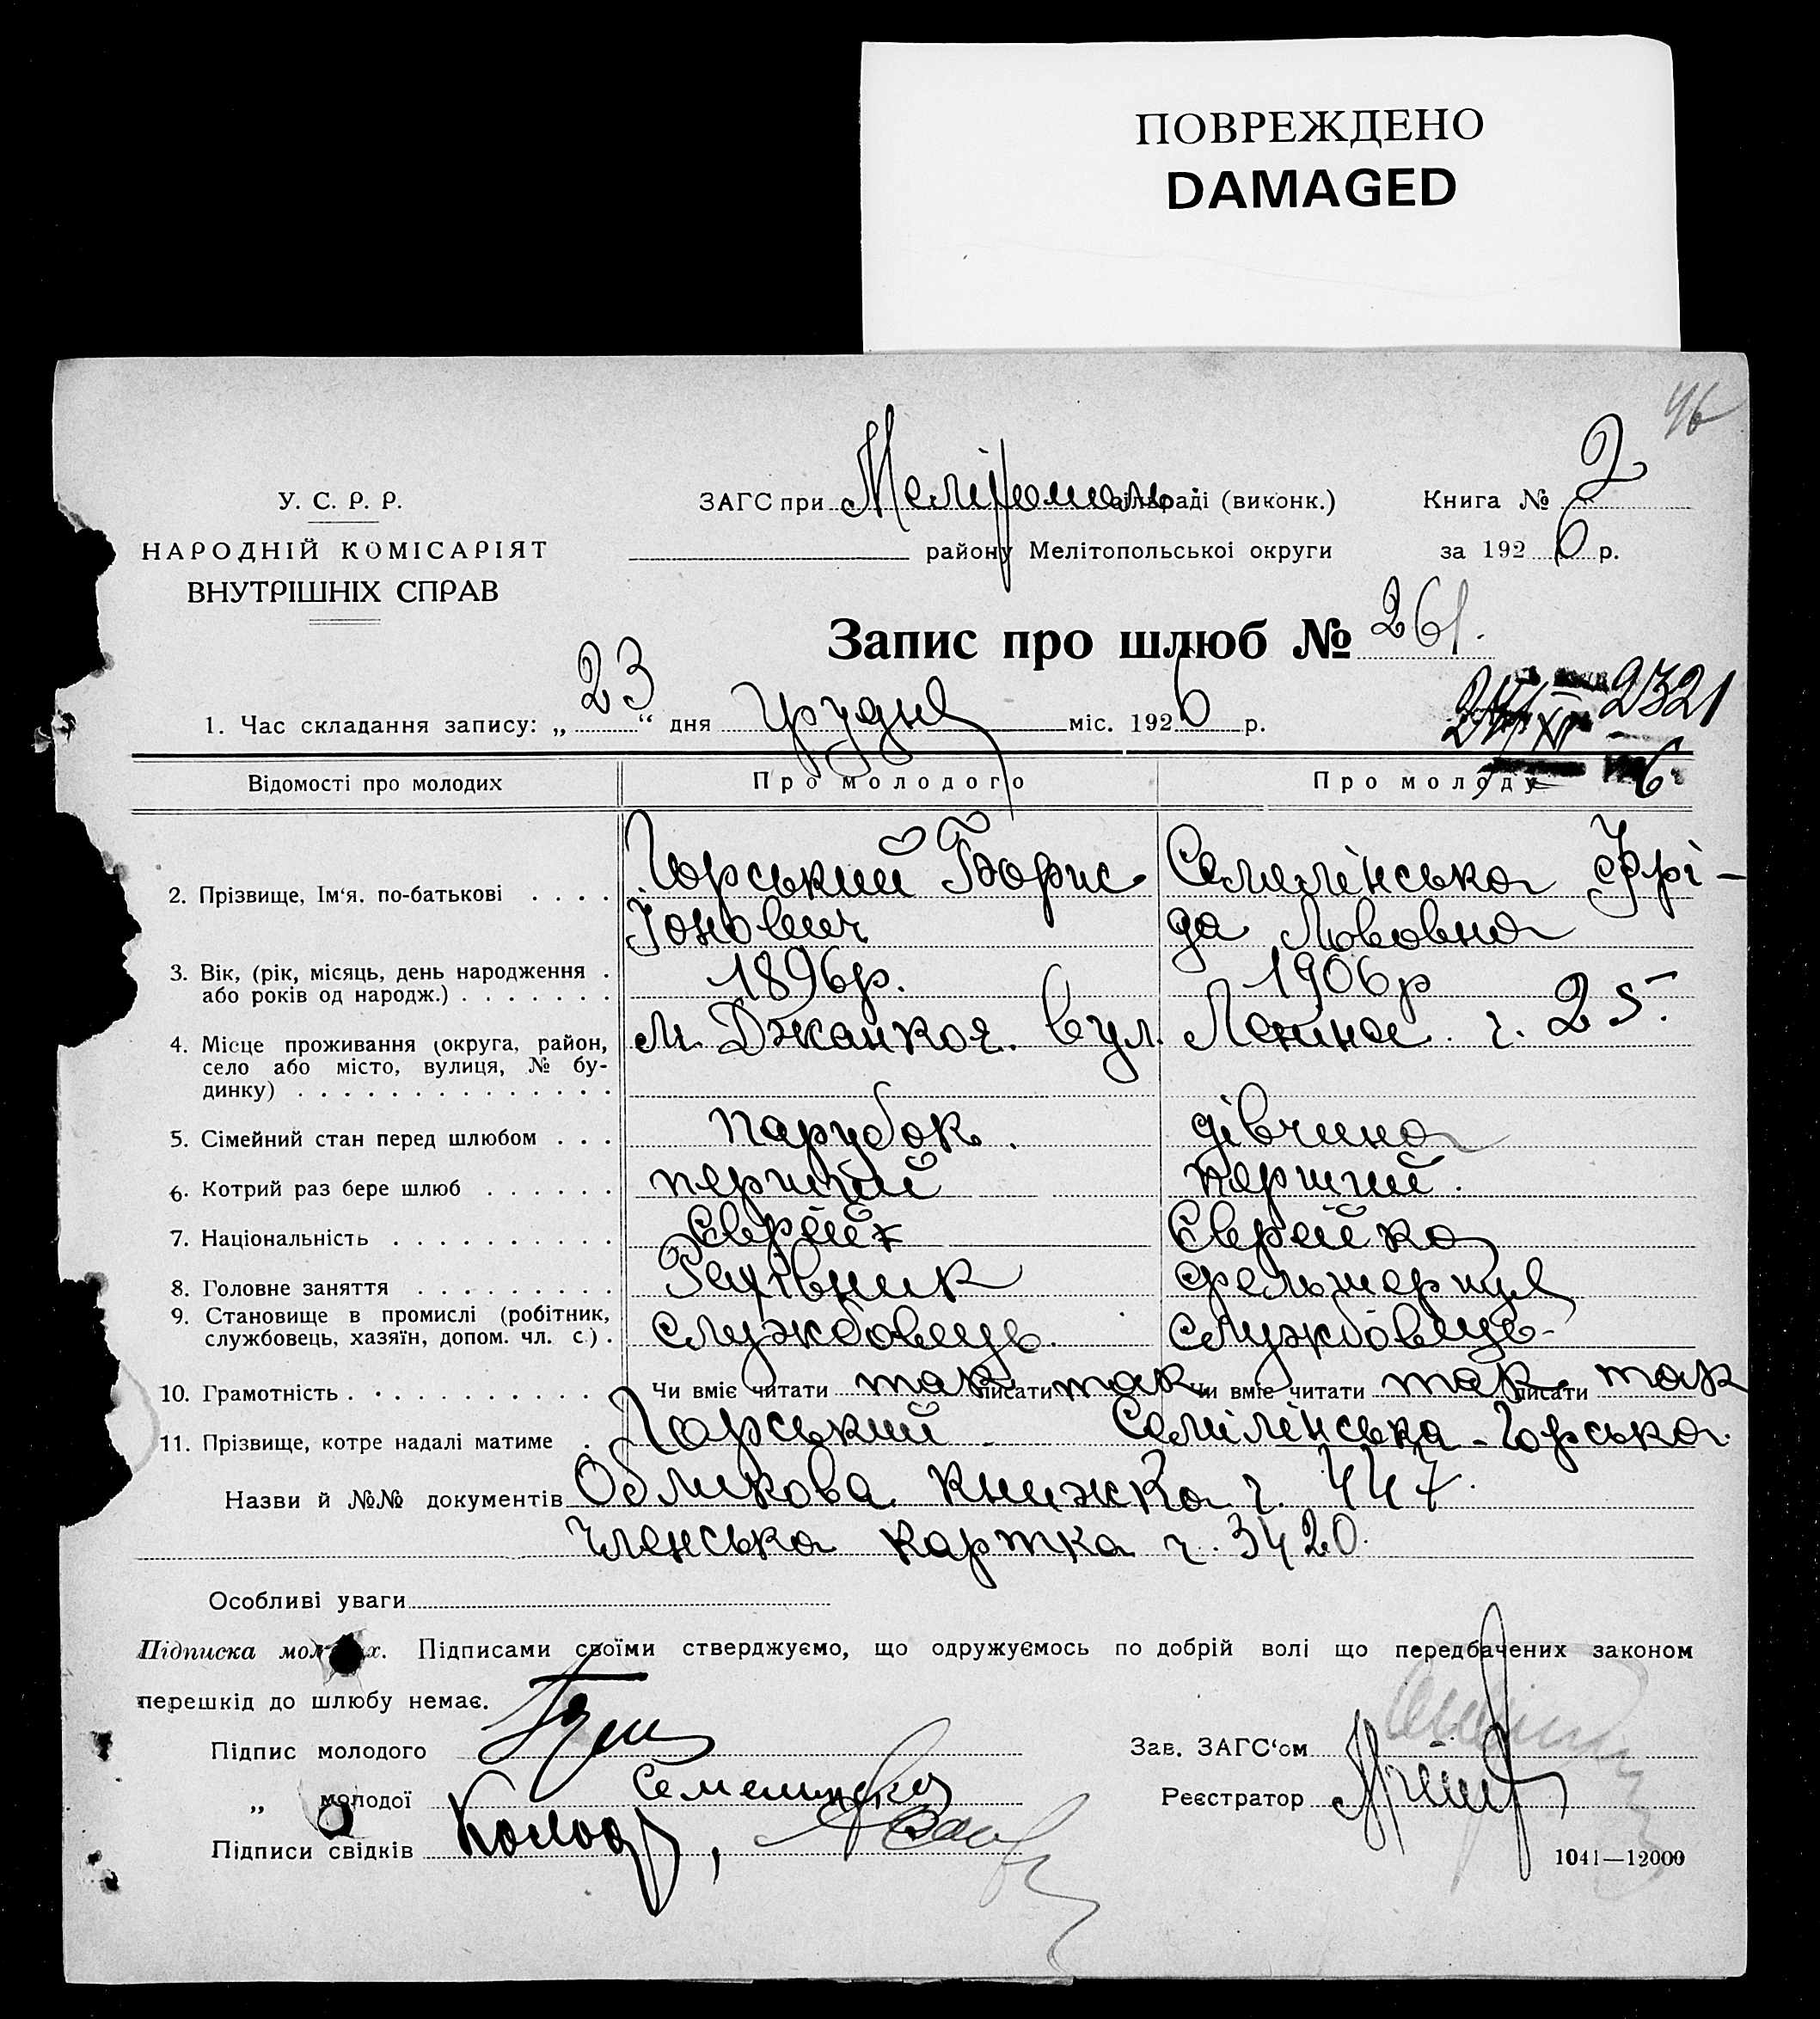 ПОВРЕЖДЕНО
DAMAGED
46
У. С. Р. Р.
НАРОДНІЙ КОМІСАРІЯТ
ВНУТРІШНІХ СПРАВ
ЗАГС при Меліtополь сільраді (виконк.)
Книга № 2
району Мелітопольської округи
за 1926 р.
Запис про шлюб № 261.
1. Час складання запису: „23“ дня грудня міс. 1926 р.
2321
Відомості про молодих
Про молодого
Про молоду
2. Прізвище, Ім‘я. по-батькові
Горський Борис
Іонович
Семелінська Фрі-
да Львовна
3. Вік, (рік, місяць, день народження
або років од народж.)
1896р.
1906р
4. Місце проживання (округа, район,
село або місто, вулиця, № бу-
динку)
м. Джанкоя. вул. Леніна ч. 25.
5. Сімейний стан перед шлюбом
парубок.
дівчина
6. Котрий раз бере шлюб
перший
перший.
7. Національність
Єврей
Єврейка
8. Головне заняття
Рахівник
фельшериця
9. Становище в промислі (робітник,
службовець, хазяїн, допом. чл. с.)
службовець.
службовець
10. Грамотність
Чи вміє читати так писати так
Чи вміє читати так писати так
11. Прізвище, котре надалі матиме
Горський
Семілінська-Горська.
Назви й №№ документів Обликова книжка ч. 447.
членська картка ч. 3420.
Особливі уваги
Підписка мол х. Підписами своїми стверджуємо, що одружуємось по добрій волі що передбачених законом
перешкід до шлюбу немає.
Підпис молодого
Зав. ЗАГС‘ом
„ молодої Семелинская
Реєстратор
Підписи свідків
1041—12000